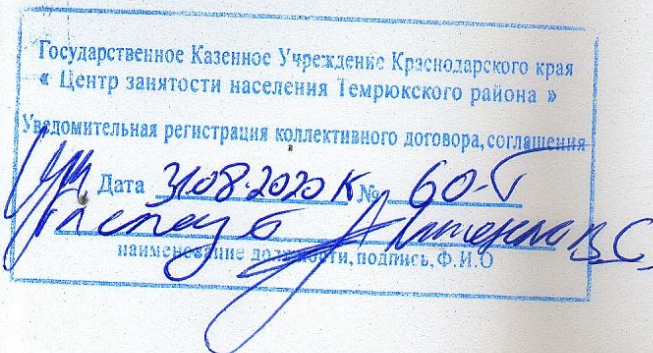 Государственное Казенное Учреждение Краснодарского края
« Центр занятости населения Темрюкского района »
Уведомительная регистрация коллективного договора, соглашения
Дата 31.08.2020 К № 60-Т
В.С.
наименование должности, подпись, Ф.И.О